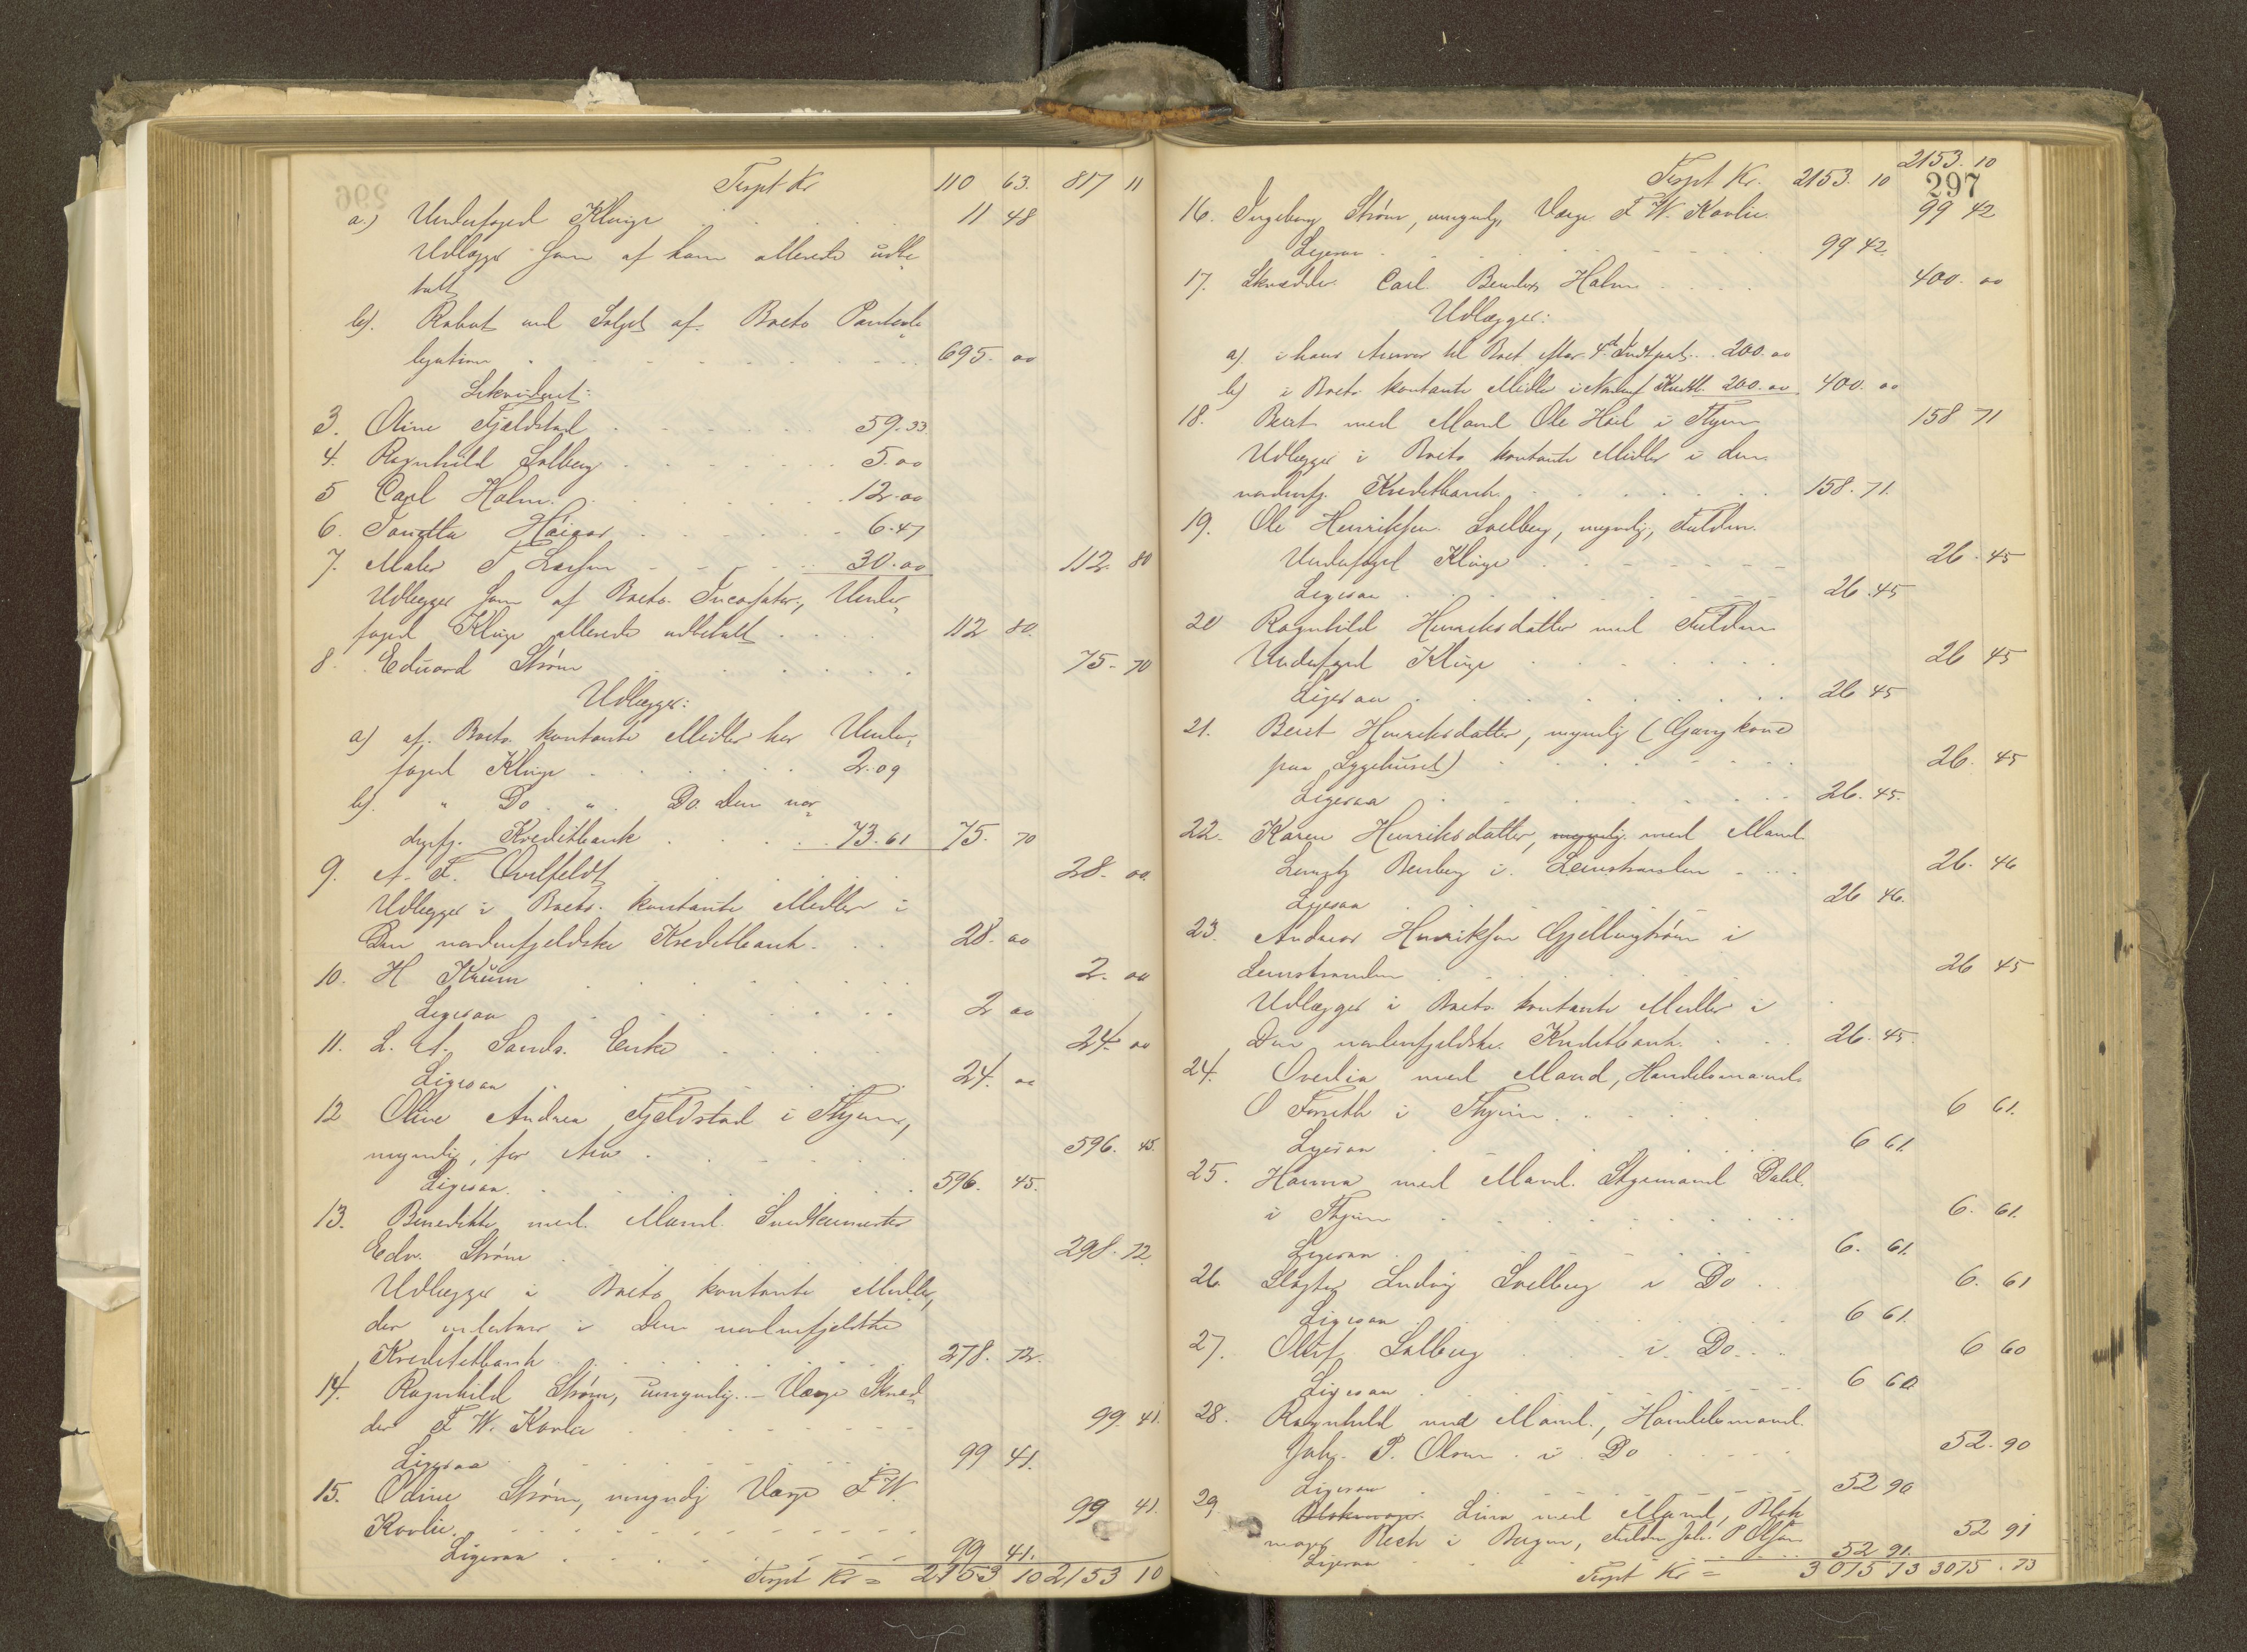 Trspt Kr 110 63. 817 11
a.) Underfoged Klinge 11 48
Udlægges som af ham allerede udbe
talt
b). Rabat ved Salget af Boets Panteob
ligation 695. 00
Likvideret:
3. Oline Fjeldstad 59.33
4. Ragnhild Solberg 5.00
5 Carl Holm 12.00
6. Tonetta Höiaas 6.47
7. Maler T Larsen 30.00 112. 80
Udlægges som af Boets Incassator, Under
foged Klinge allerede udbetalt 112 80.
8. Eduard Strøm 75. 70
Udlægges:
a) af Boets kontante Midler hos Under
foged Klinge 2.09
b). " Do " Do Den nor
denfj. Kreditbank 73.61 75. 70
9. A. F. Qvilfeldt 28. 00
Udlægges i Boets kontante Midler i
Den nordenfjeldske Kreditbank 28. 00
10. H Krüm 2. 00
Ligesaa 2 00
11. L. A. Sands. Enke 24 00
Ligesaa 24. 00
12 Oline Andrea Fjeldstad i Thjem,
myndig, for Arv 596. 45.
Ligesaa 596. 45.
13. Benedikte med Mand Snedkermester
Edv. Strøm 298. 12
Udlægges i Boets kontante Midler,
der indestaar i Den nordenfjeldske
Kreditbank 278. 12.
14. Ragnhild Strøm, umyndig. - Værge Skræd
der F W. Kavlie 99. 41.
Ligesaa 99 41.
15. Odine Strøm, umyndig Værge F W.
Kavlie 99 41.
Ligesaa 99 41.
Trspt Kr = 2153 10 2153 10
2153. 10
Trspt Kr. 2153. 10
297
16. Ingeborg Strøm, umyndig, Værge F W. Kavlie 99 42
Ligesaa 99 42.
17. Skrædder Carl Holm 400. 00
Udlægges:
a). i hans Ansvar til Boet efter 200.00
b) i Boets kontante Midler i Nordenf. Kreditb. 200.00 400. 00
18. Berit med Mand Ole Höil i Thjem 158 71
Udlægges i Boets kontante Midler i den
nordenfj. Kreditbank 158. 71.
19. Ole Henriksen Solberg, myndig, Fuldm.
Underfoged Klinge 26. 45
Ligesaa 26.45
20 Ragnhild Henriksdatter med Fuldm
Underfoged Klinge 26 45
Ligesaa 26 45
21. Berit Henriksdatter, myndig (Gangkone
paa Sygehuset) 26. 45
Ligesaa 26. 45.
22. Karen Henriksdatter, myndig. med Mand
Benberg i Leinstranden 26. 46
Ligesaa 26 46.
23. Andreas Henriksen Gjellingström i
Leinstranden 26 45
Udlægges i Boets kontante Midler i
Den nordenfjeldske Kreditbank 26. 45.
24. Ovedia med Mand, Handelsmand
O Forseth i Thjem 6 61.
Ligesaa 6 61.
25. Hanna med Mand Styrmand Dahl
i Thjem 6. 61.
Ligesaa 6. 61.
26 Slagter Ludvig Solberg i Do 6. 61
Ligesaa 6 61.
27. Oluf Solberg i Do 6 60
Ligesaa 6 60
28. Ragnhild med Mand, Handelsmand
Johs. P. Olsen i Do 52. 90
Ligesaa 52 90
29. Lina med Mand, Blok
mager Rech i Bergen, Fuldm Joh. P Olsen 52 91
Ligesaa 52 91.
Trspt Kr = 3075 73 3075. 73